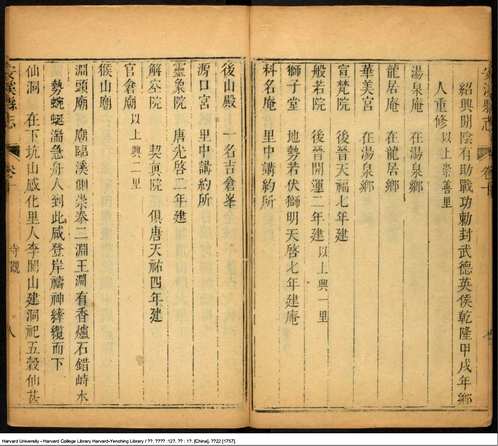 紹興間陰有助戰功勅封武德英侯乾隆甲戌年鄉
人重修以上崇善里
湯泉庵 在湯泉鄉
龍居庵 在龍居鄉
華美宮 在湯泉鄉
宣梵院 後晉天福七年建
般若院 後晉開運二年建以上興一里
獅子堂 地勢若伏獅明天啓七年建庵
科名庵 里中講約所
安溪縣志 卷十 寺觀 八
後山殿 一名吉倉峯
源口宮 里中講約所
靈象院 唐光啓二年建
解空院 契真院 俱唐天祐四年建
官倉廟以上興二里
猴山廟
淵頭廟 廟臨溪側崇奉二淵王淵有香爐石錯峙水
勢蜿蜒湍急舟人到此咸登岸禱神縴纜而下
仙洞 在下坑山感化里人李闢山建洞祀五穀仙甚
Harvard University - Harvard College Library Harvard-Yenching Library / ??. ????. 12?. ?? : 1?. [China], ??22 [1757].